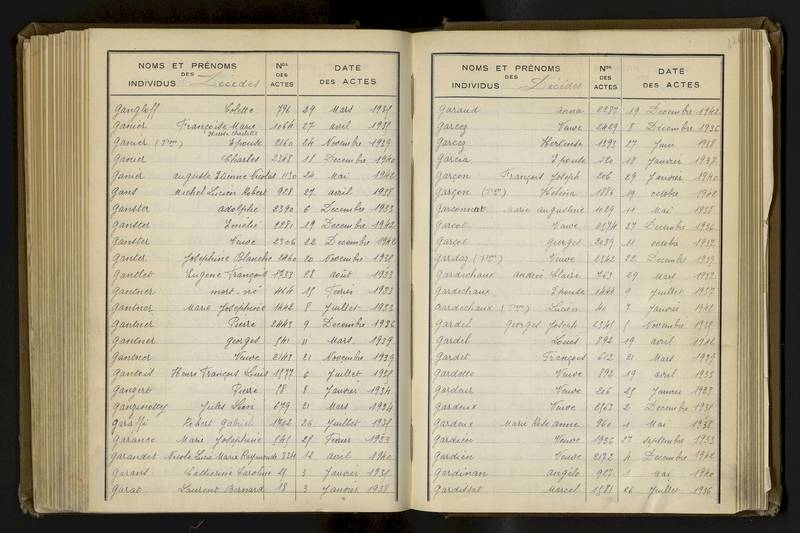 NOMS ET PRÉNOMS DES INDIVIDUS Décédés Nos DES ACTES DATE DES ACTES
Gangloff Colette 796 29 Mars 1938
Ganier Françoise Marie 1064 27 avril 1938
Ganier Epouse 2160 24 Novembre 1939
Ganier Charles 2348 18 Decembre 1940
Ganier Auguste Etienne Nicolas 1130 24 Mai 1942
Gans Michel Lucien Robert 928 27 avril 1938
Ganster adolphe 2390 6 Decembre 1933
Ganster Emelie 2281 19 Decembre 1942
Ganster Veuve 2306 22 Decembre 1942
Ganter Josephine Blanche 2460 20 Novembre 1938
Gantlet Eugene François 1733 28 août 1933
Gantner mort-né 464 15 Fevrier 1933
Gantner Marie Josephine 1442 8 Juillet 1933
Gantner Pierre 2443 9 Decembre 1936
Gantner Georges 541 11 Mars 1939
Gantner Veuve 2143 21 Novembre 1939
Gantois Henri François Louis 1577 6 Juillet 1938
Gangert Pierre 58 8 Janvier 1934
Jules Léon 679 21 Mars 1934
Garaffi Robert Gabriel 1702 26 Juillet 1938
Garance Marie Josephine 545 25 Fevrier 1933
Garandet Nicole Lucie Marie Raymonde 824 12 avril 1940
Garans Catherine Caroline 21 3 Janvier 1938
Garat Laurent Bernard 18 3 Janvier 1938
NOMS ET PRÉNOMS DES INDIVIDUS Décédés Nos DES ACTES DATE DES ACTES
Garaud anna 2287 19 Décembre 1942
Garcez Veuve 2429 8 Decembre 1936
Garcez Hortense 1393 27 Juin 1938
Garcia Epouse 120 18 Janvier 1937
Garçon François Joseph 206 29 Janvier 1940
Garçon Helena 1886 19 octobre 1942
Garconnat Marie Augustine 1029 11 Mai 1938
Garcot Veuve 2574 27 Decembre 1936
Garcot Georges 2039 11 octobre 1937
Gardaz Veuve 2342 22 Decembre 1939
Gardechaux Andrée Claire 763 29 Mars 1937
Gardechaux Epouse 1444 9 Juillet 1937
Gardechaux Lucien 40 7 Janvier 1942
Gardel Georges Joseph 2341 5 Novembre 1938
Gardel Louis 892 19 avril 1942
Gardet François 612 21 Mars 1939
Gardette Veuve 892 19 avril 1933
Gardeur Veuve 206 25 Janvier 1933
Gardeux Veuve 2563 2 Decembre 1938
Gardeux Marie Rose Anne 960 1 Mai 1938
Gardien Veuve 1936 27 Septembre 1933
Gardien Veuve 2172 4 Decembre 1942
Gardinan Angelo 927 1 Mai 1940
Gardissat Marcel 1581 26 Juillet 1936